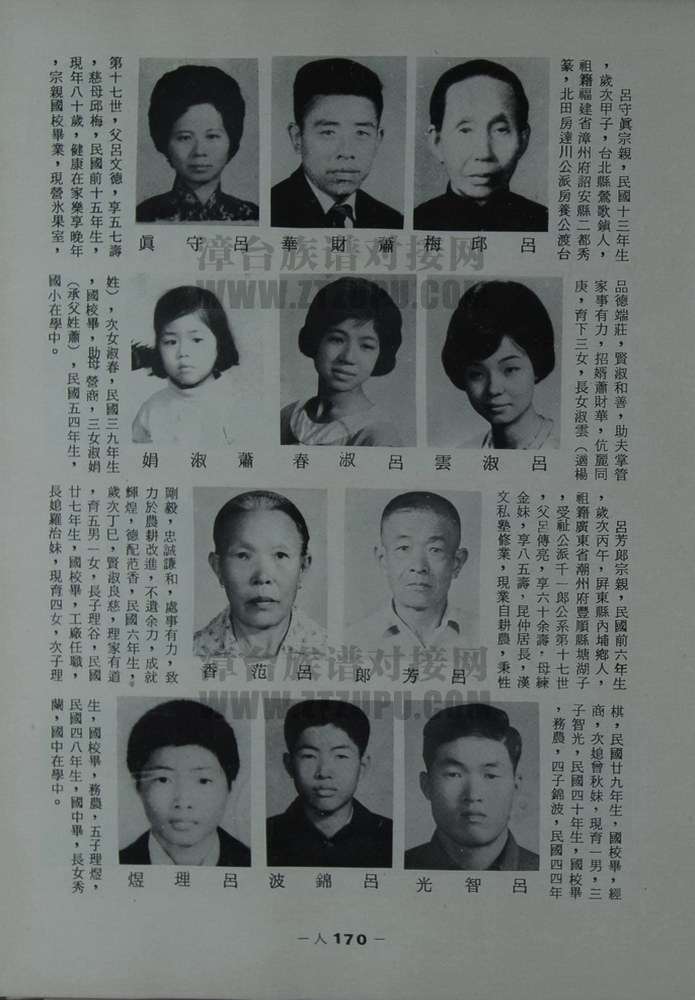 呂守眞宗親，民國十三年生
，歲次甲子，台北縣鶯歌鎮人，
祖籍福建省漳州府詔安縣二都秀
篆，北田房達川公派房養公渡台
呂邱梅
蕭財華
呂守眞
第十七世，父呂文德，享五七壽
，慈母邱梅，民國前十五年生，
現年八十歲，健康在家樂享晚年
，宗親國校畢業，現營氷果室，
品德端莊，賢淑和善，助夫掌管
家事有力，招婿蕭財華，伉麗同
庚，育下三女，長女淑雲（適楊
呂淑雲
呂淑春
蕭淑娟
姓），次女淑春，民國三九年生
，國校畢，助母營商，三女淑娟
（承父姓蕭），民國五四年生，
國小在學中。
呂芳郎宗親，民國前六年生
，歲次丙午，屏東縣內埔鄉人，
祖籍廣東省潮州府豐順縣塘湖子
，受祉公派千一郎公系第十七世
，父呂傳亮，享六十余壽，母練
金妹，享八五壽，昆仲居長，漢
文私塾修業，現業自耕農，秉性
呂芳郎
呂范香
剛毅，忠誠謙和，處事有力，致
力於農耕改進，不遺余力，成就
輝煌，德配范香，民國六年生，
歲次丁巳，賢淑良慈，理家有道
，育五男一女，長子理谷，民國
廿七年生，國校畢，工廠任職，
長媳羅治妹，現育四女，次子理
棋，民國廿九年生，國校畢，經
商，次媳曾秋妹，現育一男，三
子智光，民國四十年生，國校畢
，務農，四子錦波，民國四四年
呂智光
呂錦波
呂理煜
生，國校畢，務農，五子理煜，
民國四八年生，國中畢，長女秀
蘭，國中在學中。
漳台族谱对接网
WWW.ZTZUPU.COM
漳台族谱对接网
WWW.ZTZUPU.COM
－人170－